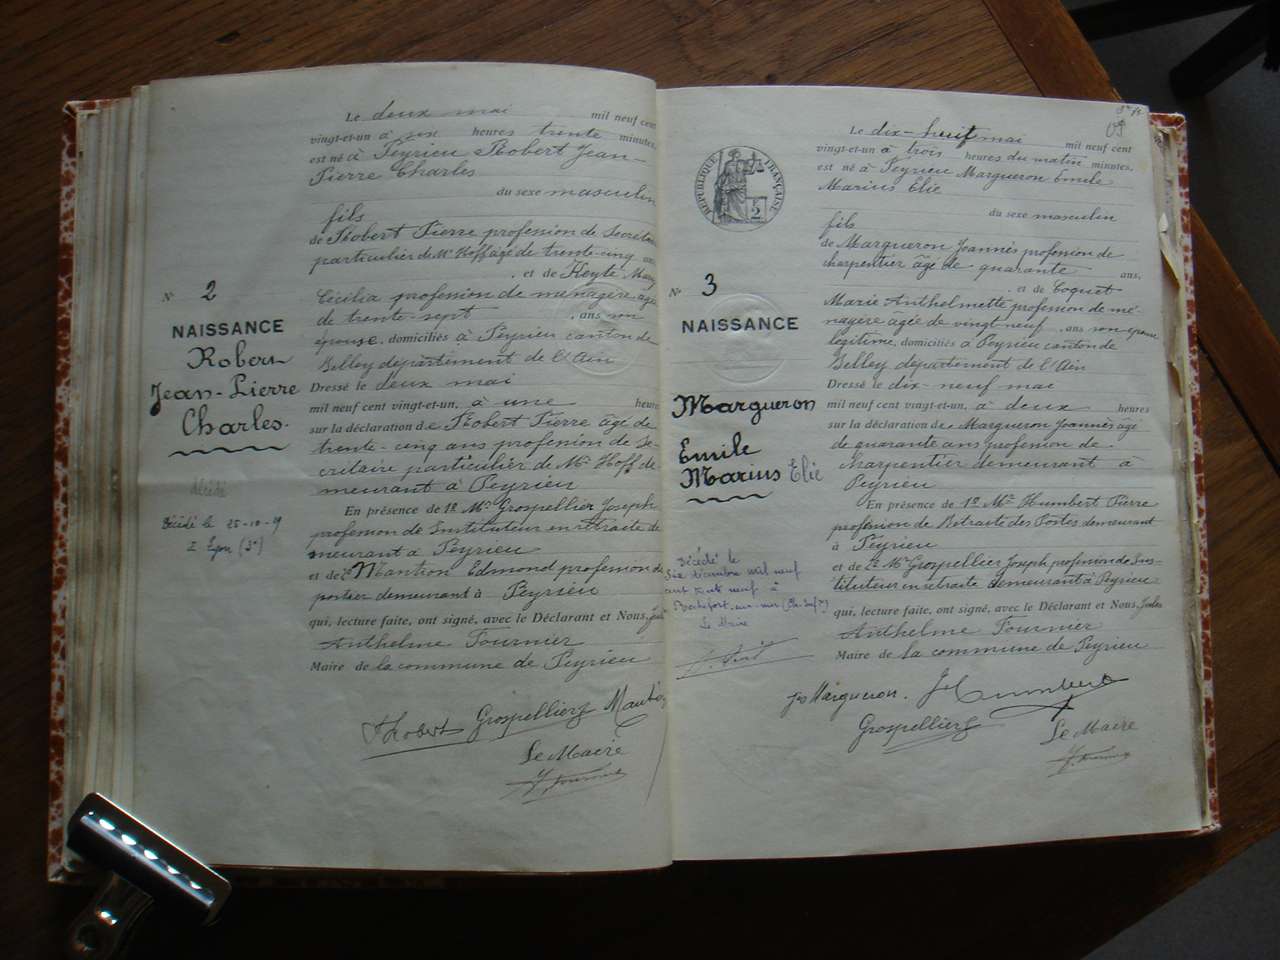 Le deux mai mil neuf cent
vingt-et-un à onze heures trente minutes,
est né à Peyrieu Robert Jean-
Pierre Charles
du sexe masculin
fils
de Robert Pierre profession de Secrétaire
particulier de Mr Hoff âgé de trente-cinq ans,
, et de Heyte Mary
Cécilia profession de ménagère âgée
de trente-sept , ans son
épouse, domiciliés à Peyrieu canton de
Belley département de l'Ain
Dressé le deux mai
mil neuf cent vingt-et-un, à une heure
sur la déclaration de Robert Pierre âgé de
trente-cinq ans profession de Se-
crétaire particulier de Mr Hoff de-
meurant à Peyrieu
En présence de 1º Mr Grospellier Joseph
profession de Instituteur en retraite de-
meurant à Peyrieu
et de 2º Mantion Edmond profession de
postier demeurant à Peyrieu
qui, lecture faite, ont signé, avec le Déclarant et Nous, Jules
Anthelme Fournier
Maire de la commune de Peyrieu
PRobert Grospellier Mantion
Le Maire
J. Fournier
Nº 2
NAISSANCE
Robert
Jean-Pierre
Charles.
décédé
Décédé le 25-10-
à Lyon (3e)
09
RÉPUBLIQUE FRANÇAISE
2
Le dix-huit mai mil neuf cent
vingt-et-un à trois heures du matin minutes,
est né à Peyrieu Margueron Emile
Marius Elie
du sexe masculin
fils
de Margueron Joannès profession de
charpentier âgé de quarante ans,
, et de Coquet
Marie Anthelmette profession de mé-
nagère âgée de vingt-neuf , ans son épouse
légitime, domiciliés à Peyrieu canton de
Belley département de l'Ain
Dressé le dix-neuf mai
mil neuf cent vingt-et-un, à deux heures
sur la déclaration de Margueron Joannès âgé
de quarante ans profession de
charpentier demeurant à
Peyrieu
En présence de 1º Mr Humbert Pierre
profession de Retraité des Postes demeurant
à Peyrieu
et de 2º Mr Grospellier Joseph profession de Ins-
tituteur en retraite demeurant à Peyrieu
qui, lecture faite, ont signé, avec le Déclarant et Nous, Jules
Anthelme Fournier
Maire de la commune de Peyrieu
Jes Margueron. Humbert
Grospellier Le Maire
J. Fournier
Nº 3
NAISSANCE
Margueron
Emile
Marius Elie
Décédé le
six décembre mil neuf
cent trente neuf à
Rochefort-sur-mer
Le Maire